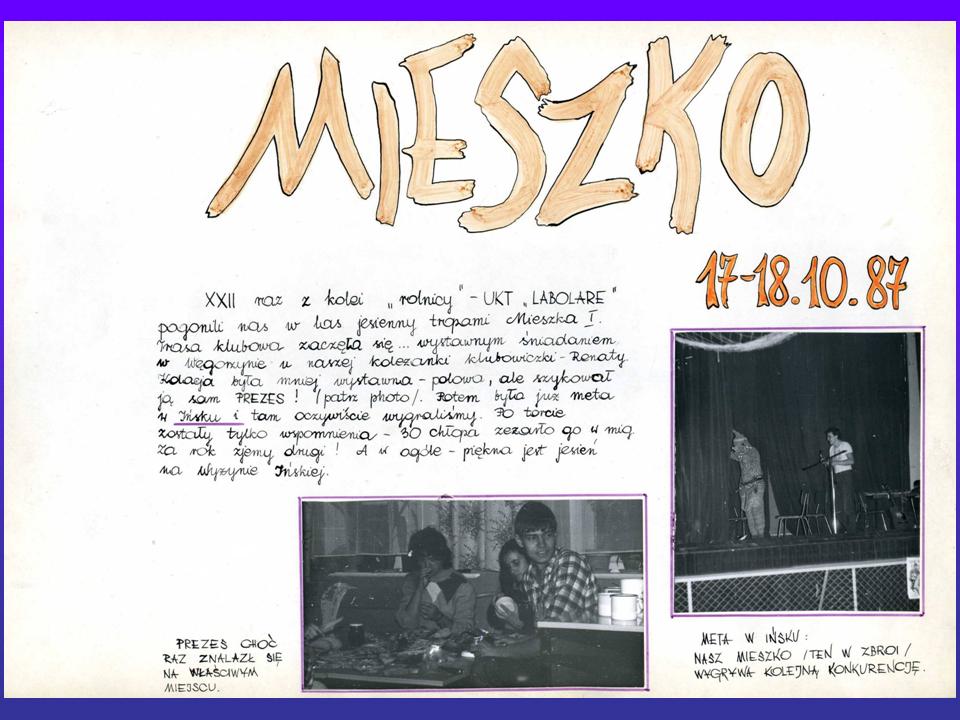 MIESZKO
17-18.10.87
XXII raz z kolei „rolnicy" - UKT „LABOLARE"
pogonili nas w las jesienny tropami Mieszka I.
Trasa klubowa zaczęła się... wystawnym śniadaniem
w Węgorzynie u naszej koleżanki klubowiczki - Renaty.
Kolacja była mniej wystawna - polowa, ale szykował
ją sam PREZES ! /patrz photo/. Potem była już meta
w Ińsku i tam oczywiście wygraliśmy. Po torcie
zostały tylko wspomnienia - 30 chłopa zeżarło go w mig.
Za rok zjemy drugi ! A w ogóle - piękna jest jesień
na Wyżynie Ińskiej.
PREZES CHOĆ
RAZ ZNALAZŁ SIĘ
NA WŁAŚCIWYM
MIEJSCU.
META W IŃSKU :
NASZ MIESZKO /TEN W ZBROI/
WYGRYWA KOLEJNĄ KONKURENCJĘ.